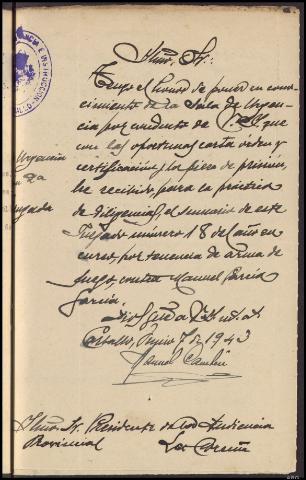 Iltmo. Sr.:
Tengo el honor de poner en cono-
cimiento de la Sala de Urgen-
cia por conducto de V.I. que
con las oportunas carta orden y
certificación y la pieza de prisión,
he recibido, para la práctica
de diligencias, el sumario de este
Juzgado número 18 del año en
curso, por tenencia de arma de
fuego, contra Manuel García
García.
Dios guarde a V.I. m. a.
Junio 7 de 1943
Manuel
Iltmo. Sr. Presidente de la Audiencia
Provincial La Coruña
Urgencia
E INSTRUCCION